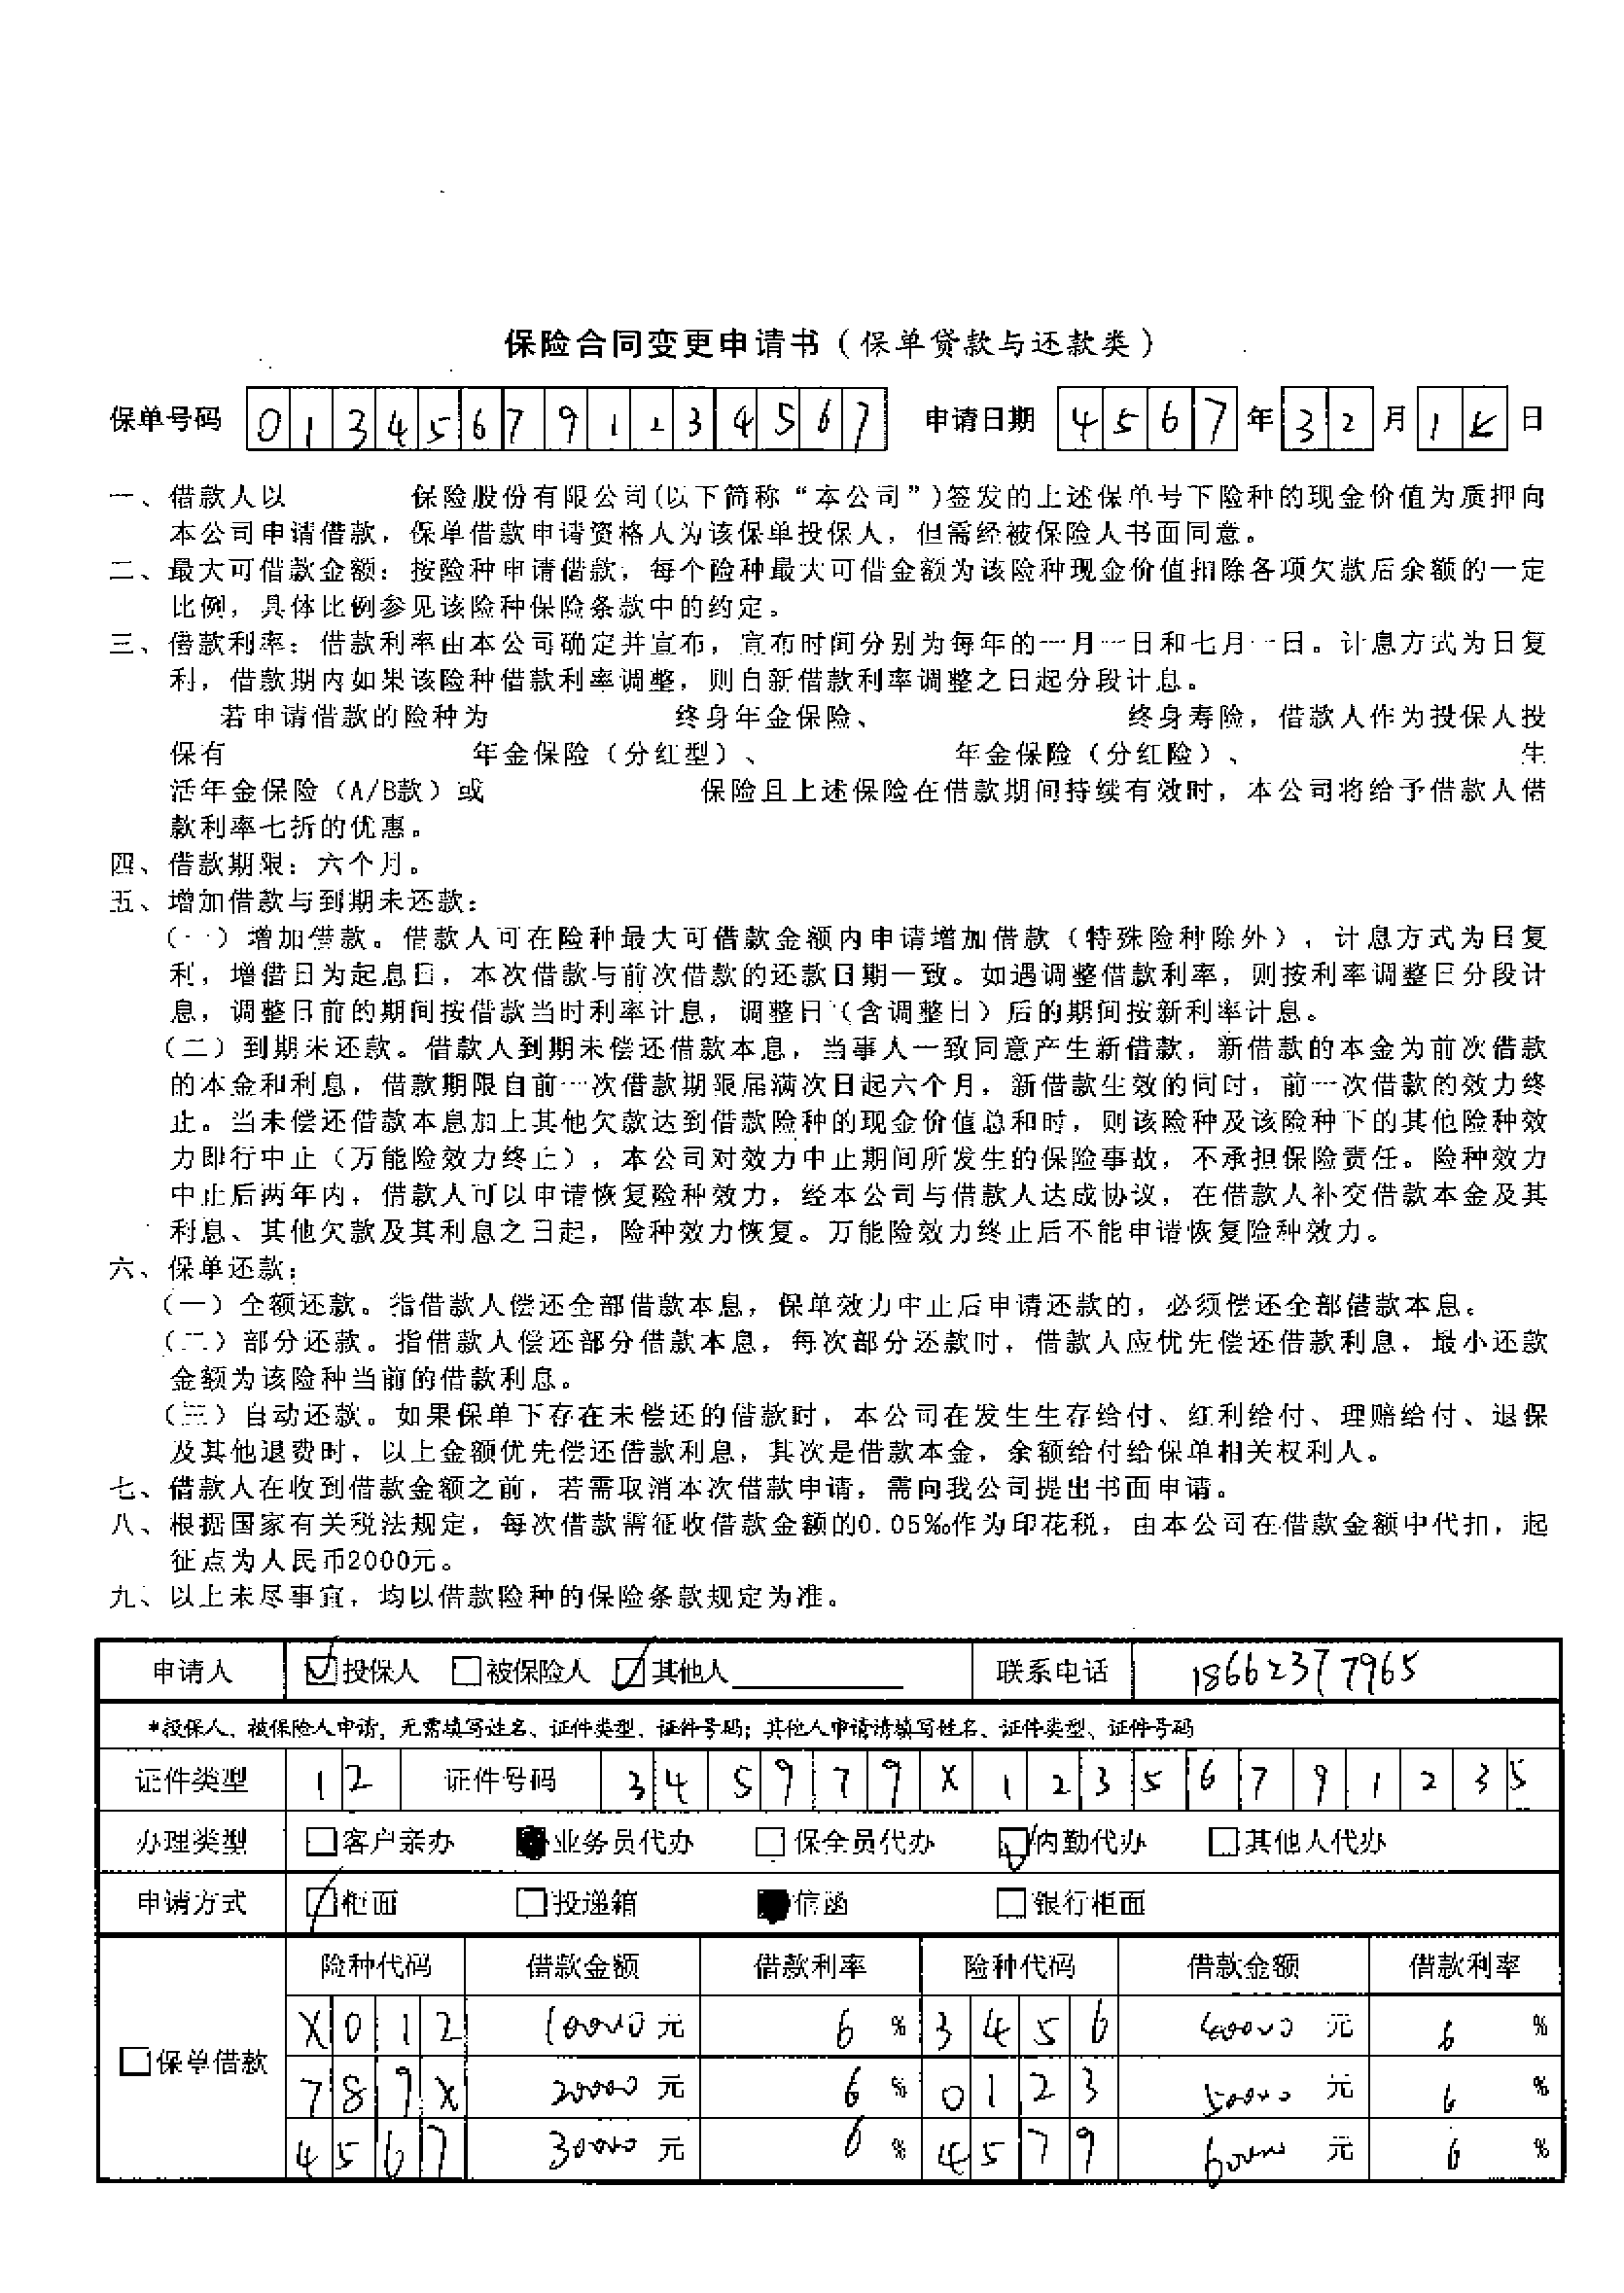 保险合同变更申请书（保单贷款与还款类）
保单号码 013456791234567 申请日期 4567年32月1日
一、借款人以 保险股份有限公司(以下简称“本公司”)签发的上述保单号下险种的现金价值为质押向
本公司申请借款，保单借款申请资格人为该保单投保人，但需经被保险人书面同意。
二、最大可借款金额：按险种申请借款，每个险种最大可借金额为该险种现金价值扣除各项欠款后余额的一定
比例，具体比例参见该险种保险条款中的约定。
三、借款利率：借款利率由本公司确定并宣布，宣布时间分别为每年的一月一日和七月一日。计息方式为日复
利，借款期内如果该险种借款利率调整，则自新借款利率调整之日起分段计息。
若申请借款的险种为 终身年金保险、 终身寿险，借款人作为投保人投
保有 年金保险（分红型）、 年金保险（分红险）、 生
活年金保险（A/B款）或 保险且上述保险在借款期间持续有效时，本公司将给予借款人借
款利率七折的优惠。
四、借款期限：六个月。
五、增加借款与到期未还款：
（一）增加借款。借款人可在险种最大可借款金额内申请增加借款（特殊险种除外），计息方式为日复
利，增借日为起息日，本次借款与前次借款的还款日期一致。如遇调整借款利率，则按利率调整日分段计
息，调整日前的期间按借款当时利率计息，调整日（含调整日）后的期间按新利率计息。
（二）到期未还款。借款人到期未偿还借款本息，当事人一致同意产生新借款，新借款的本金为前次借款
的本金和利息，借款期限自前一次借款期限届满次日起六个月，新借款生效的同时，前一次借款的效力终
止。当未偿还借款本息加上其他欠款达到借款险种的现金价值总和时，则该险种及该险种下的其他险种效
力即行中止（万能险效力终止），本公司对效力中止期间所发生的保险事故，不承担保险责任。险种效力
中止后两年内，借款人可以申请恢复险种效力，经本公司与借款人达成协议，在借款人补交借款本金及其
利息、其他欠款及其利息之日起，险种效力恢复。万能险效力终止后不能申请恢复险种效力。
六、保单还款：
（一）全额还款。指借款人偿还全部借款本息，保单效力中止后申请还款的，必须偿还全部借款本息。
（二）部分还款。指借款人偿还部分借款本息，每次部分还款时，借款人应优先偿还借款利息，最小还款
金额为该险种当前的借款利息。
（三）自动还款。如果保单下存在未偿还的借款时，本公司在发生生存给付、红利给付、理赔给付、退保
及其他退费时，以上金额优先偿还借款利息，其次是借款本金，余额给付给保单相关权利人。
七、借款人在收到借款金额之前，若需取消本次借款申请，需向我公司提出书面申请。
八、根据国家有关税法规定，每次借款需征收借款金额的0.05‰作为印花税，由本公司在借款金额中代扣，起
征点为人民币2000元。
九、以上未尽事宜，均以借款险种的保险条款规定为准。
申请人 投保人 被保险人 其他人 联系电话 18662377965
*投保人、被保险人申请，无需填写姓名、证件类型、证件号码；其他人申请请填写姓名、证件类型、证件号码
证件类型 12 证件号码 345979X12356791235
办理类型 客户亲办 业务员代办 保全员代办 内勤代办 其他人代办
申请方式 柜面 投递箱 信函 银行柜面
险种代码 借款金额 借款利率 险种代码 借款金额 借款利率
X012 10000元 6% 3456 40000元 6%
保单借款
789X 20000元 6% 0123 50000元 6%
4567 30000元 6% 4579 60000元 6%